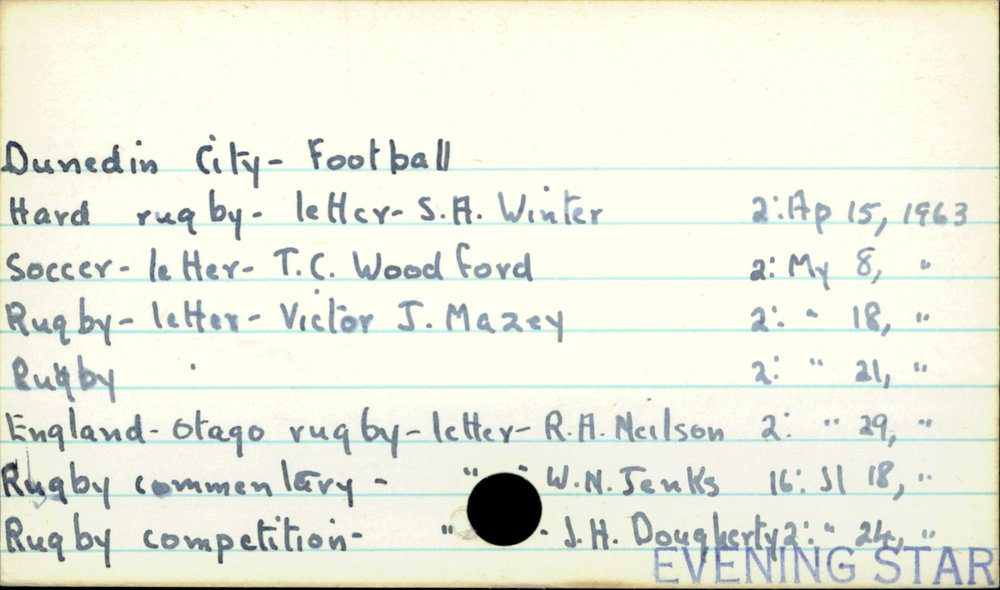 Dunedin City- Football
Hard rugby- letter- S.A. Winter 2: Ap 15, 1963
Soccer- letter- T.C. Woodford 2: My 8, "
Rugby- letter- Victor J. Mazey 2: " 18, "
Rugby 2: " 21, "
England-Otago rugby-letter- R.A. Neilson 2: " 29, "
Rugby commentary - " - W.N. Jenks 16: Jl 18, "
Rugby competition- " - J.H. Dougherty 2: " 24, "
EVENING STAR